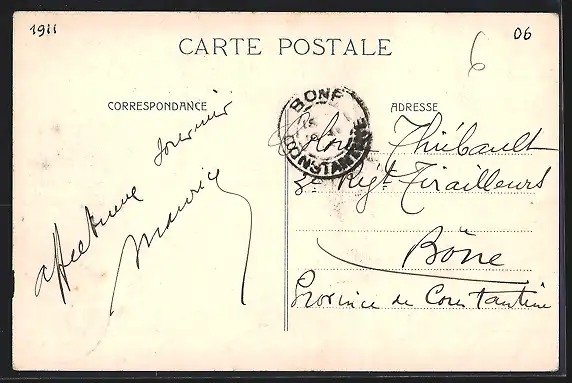 1911
06
CARTE POSTALE
6
CORRESPONDANCE
ADRESSE
BONE
CONSTANTINE
Affectueux souvenir
Maurice
Colonel Thiébault
3e Rég.t Tirailleurs
Bône
Province de Constantine